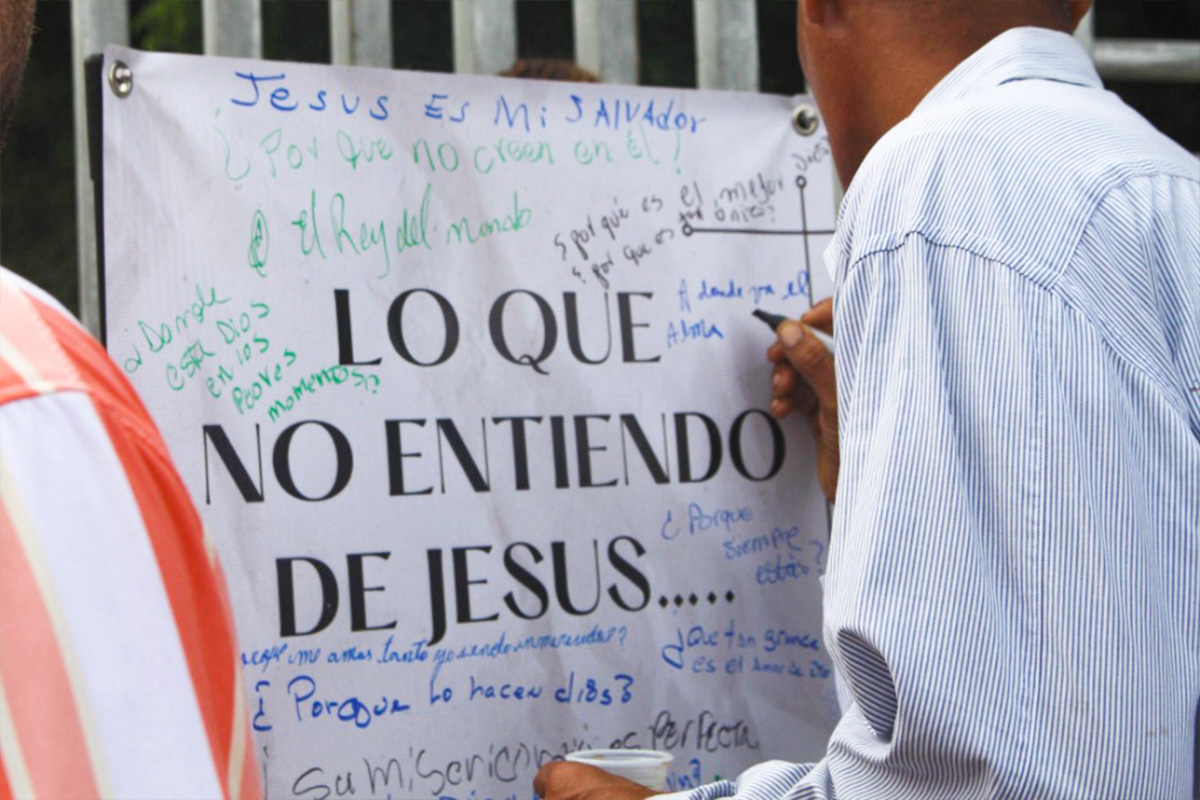 Jesus Es Mi SAlVAdor
¿Por que no creen en él?
el Rey del mundo
¿por qué es el mejor
¿por que es
único?
A donde va el
Alma
¿Donde
esta Dios
en los
Peores
momentos?
LO QUE
NO ENTIENDO
DE JESUS.....
¿Porque
siempre
estás?
me amas tanto yo siendo
¿Que tan grande
es el Amor de
¿Porque Lo hacen diós?
su es Perfecta